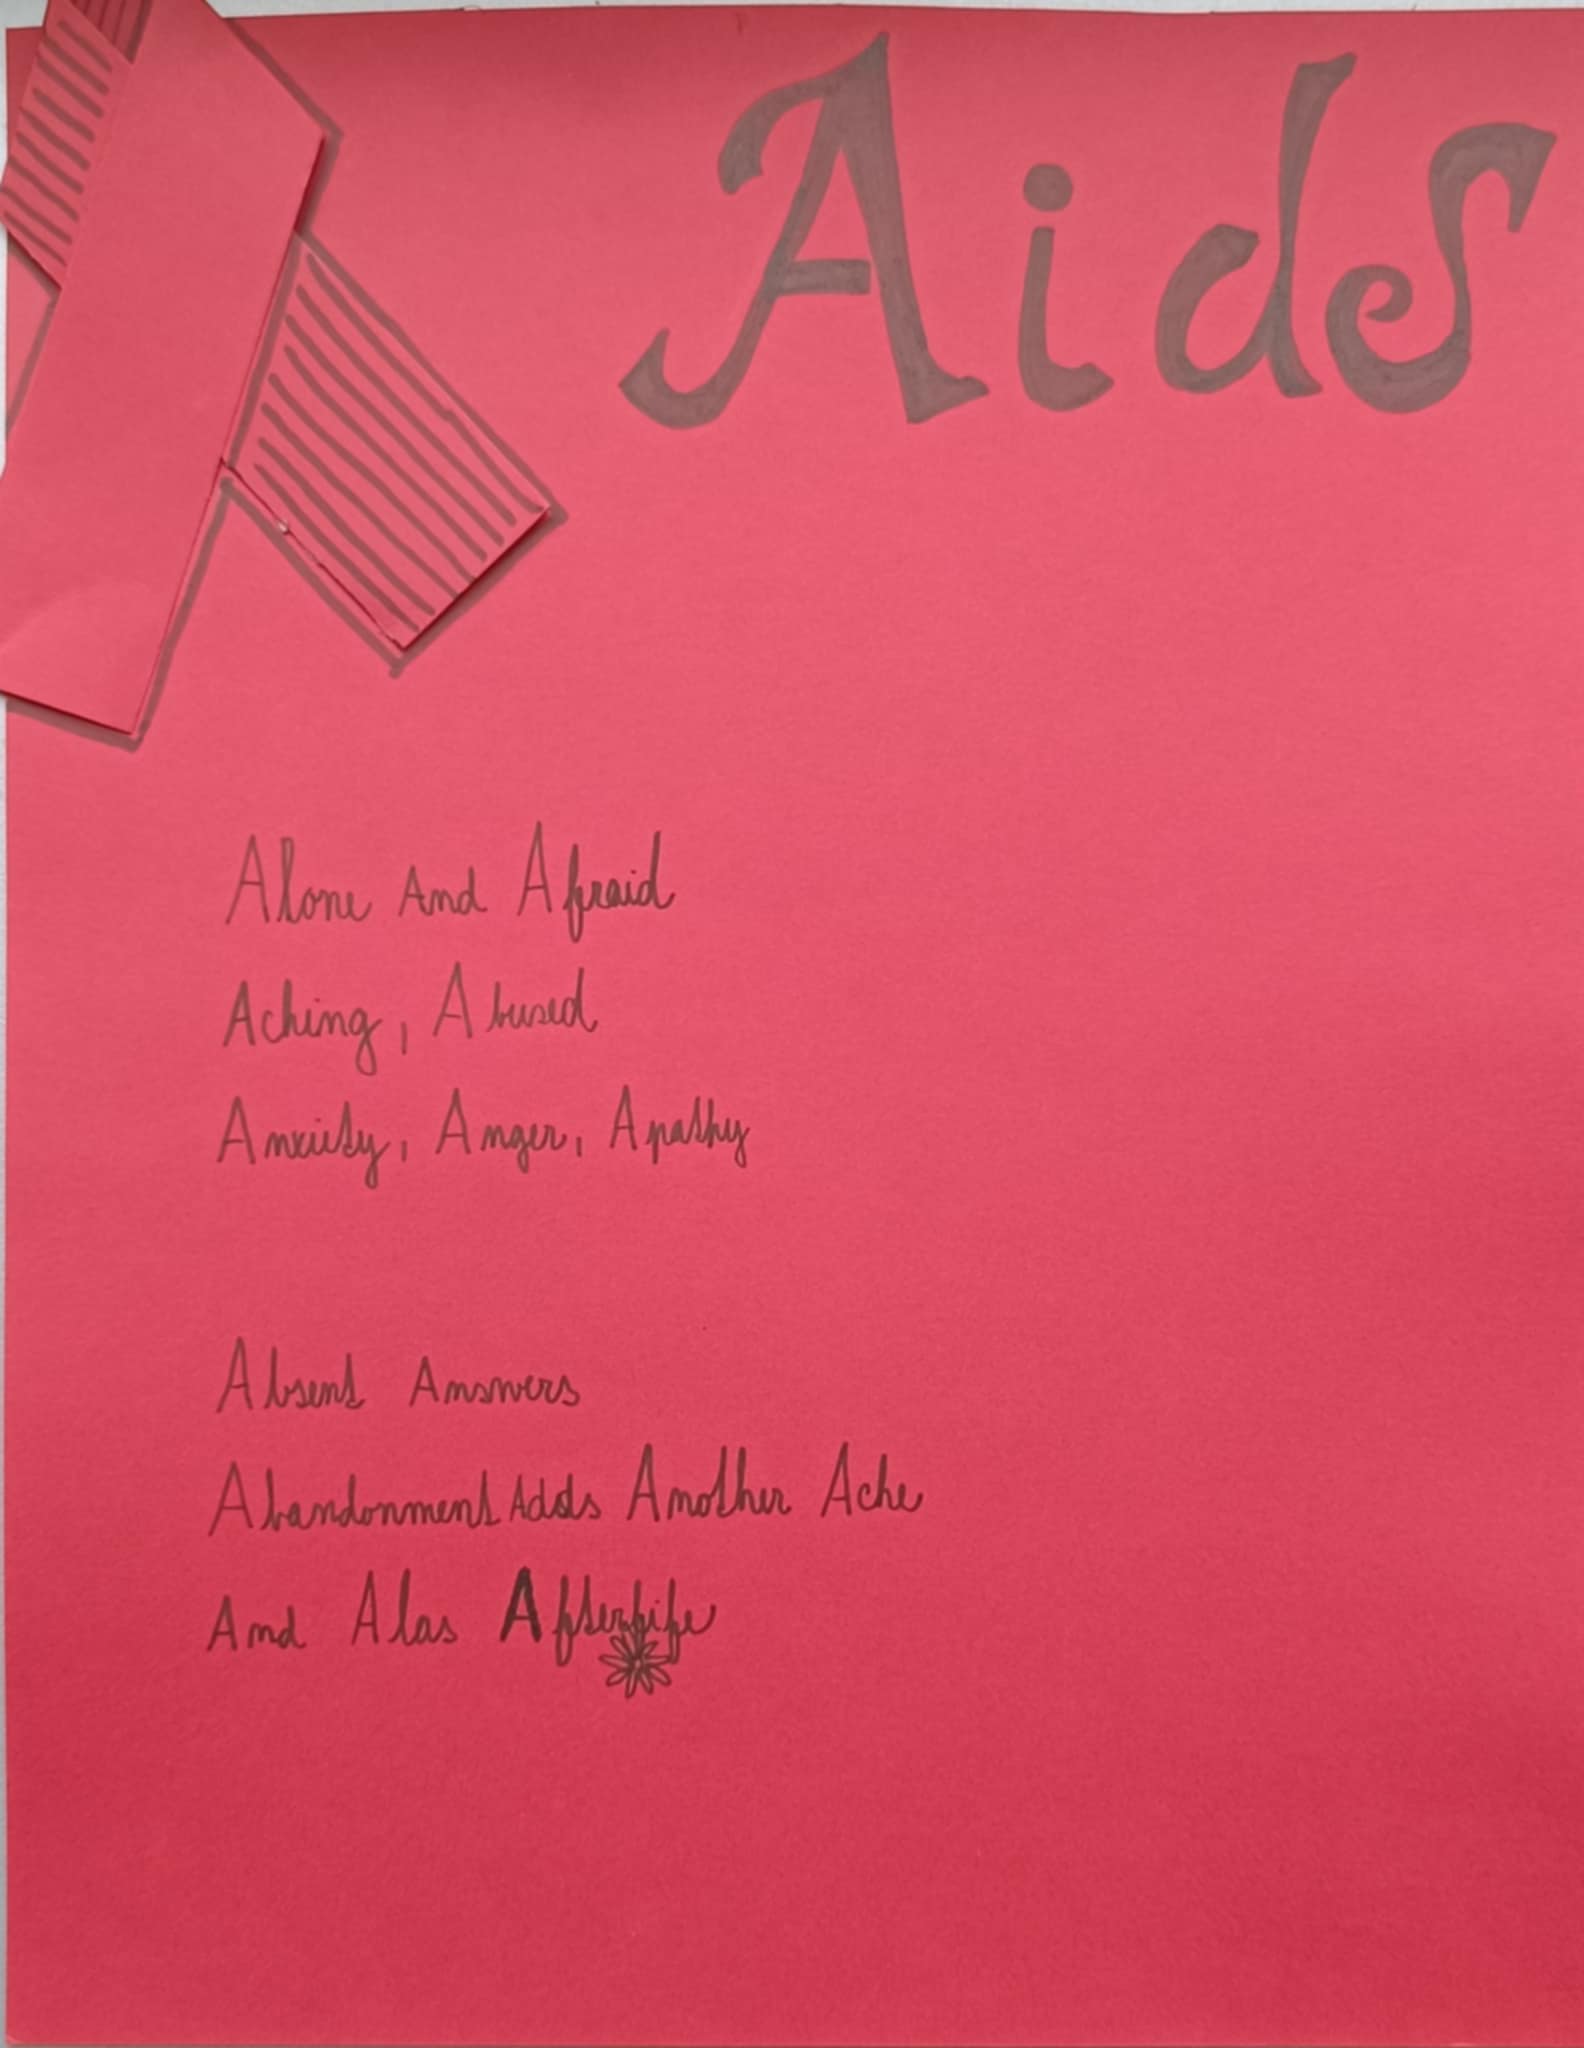 Aids
Alone And Afraid
Aching, Abused
Anxiety, Anger, Apathy
Absent Answers
Abandonment Adds Another Ache
And Alas Afterlife